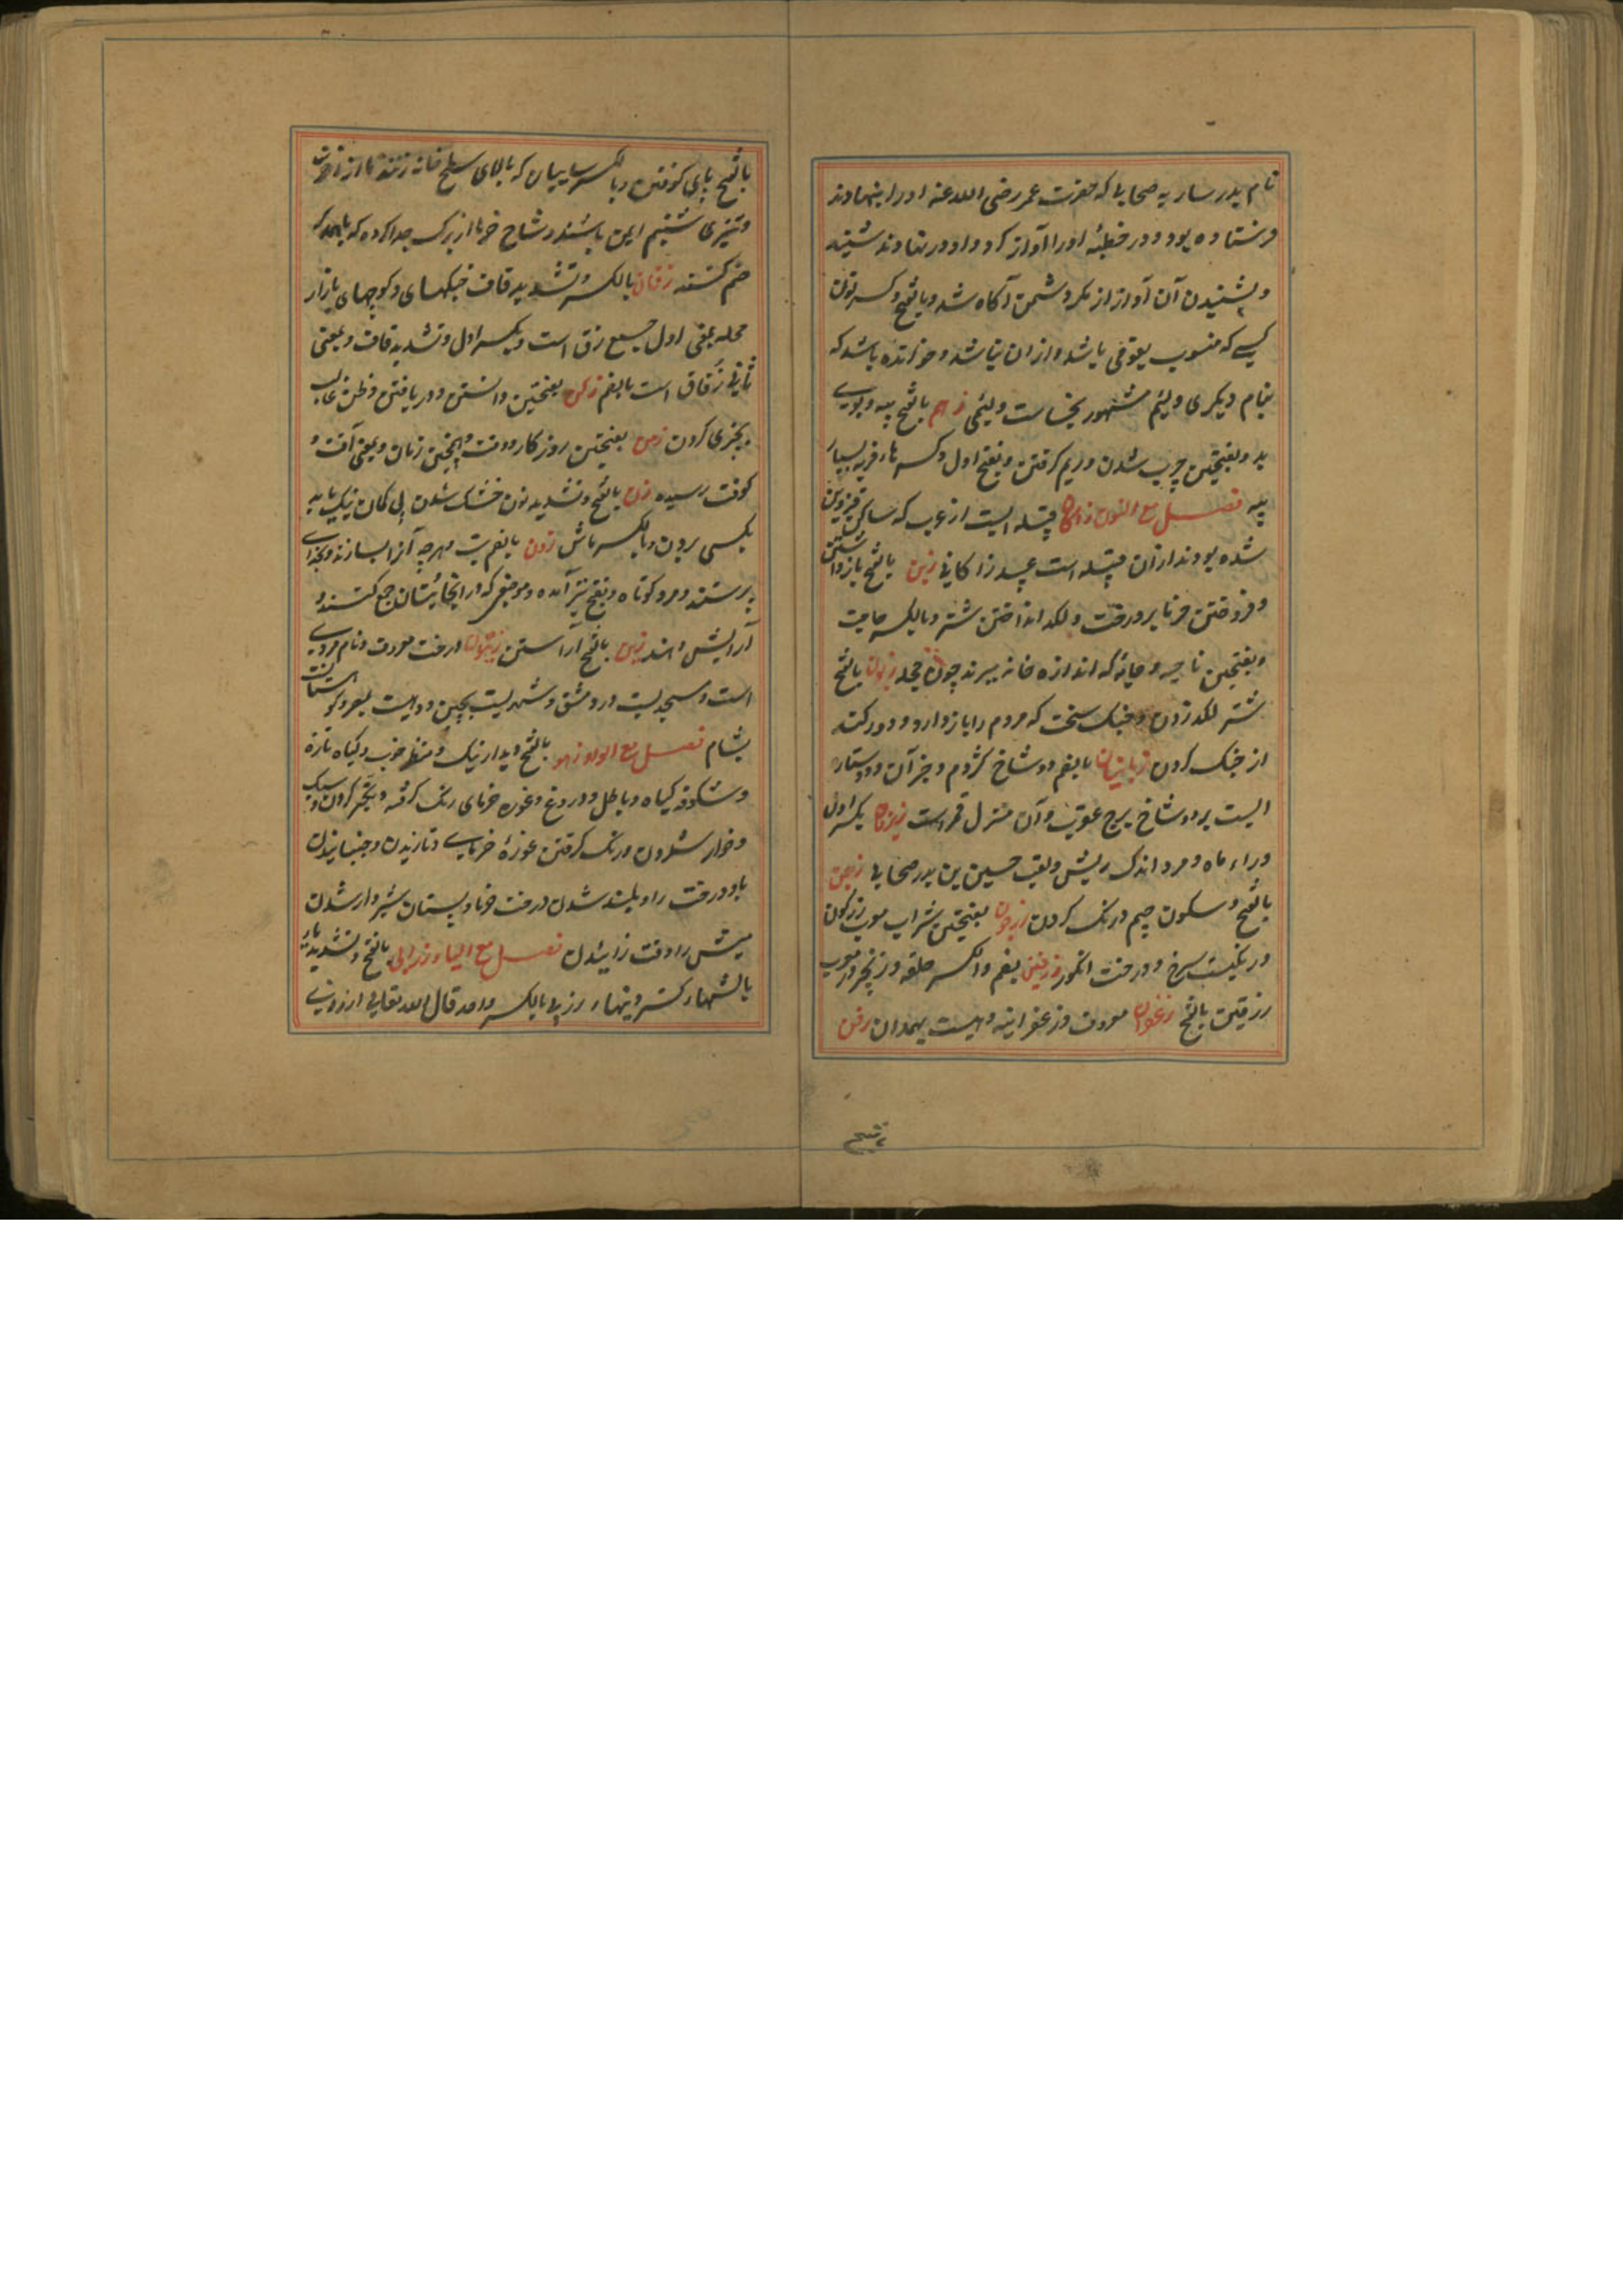 نام پدر ساریه صحابی که حضرت عمر رضی الله عنه او را بنهاوند
فرستاده بود و در خطبه او را آواز کرد و او در نهاوند شنید
و بشنیدن آن آواز از مکر دشمن آگاه شد و بالفتح و کسر نون
کسی که منسوب بقومی باشد و از ان نباشد و خوانده باشد که
بنام دیگری و لئیم مشهور بخساست و لئیمی زهم بالفتح پیه و بوی
بد و بفتحتین چرب شدن و ریم گرفتن و بفتح اول و کسر هاء فربه بسیار
پیه فصل مع النون زاکان قبیله ایست از عرب که ساکن قزوین
شده بودند از ان قبیله است عبید زاکانی زبن بالفتح باز داشتن
و فروختن خرما بر درخت و لگد انداختن شتر و بالکسر حاجت
و بفتحتین ناحیه و جامه که اندازه خانه ببرند چون حجله زبون بالفتح
شتر لگد زدن و جنگ سخت که مردم را باز دارد و دور کند
از جنگ کردن زبانیان بالضم دو شاخ کژدم و جز آن و دو ستاره
ایست بر دو شاخ برج عقرب و آن منزل قمر است زبرقان بکسر اول
و راء ماه و مرد اندک ریش و لقب حسین بن بدر صحابی زجن
بالفتح و سکون جیم درنگ کردن زرجون بفتحتین شراب معرب زرگون
و رنگیست سرخ و درخت انگور زرفین بضم و الکسر حلقه زنجیر در معرب
زرفین بالفتح زعفران معروف و زعفرانیه دهیست بهمدان زفن
بالفتح پای کوفتن و بالکسر سایبان که بالای سطح خانه زنند تا از
و تیزی شبنم ایمن باشند و شاخ خرما از برگ جدا کرده که باهم
ضم کنند زقان بالکسر و تشدید قاف خیکهای و کوچهای بازار
محله بمعنی اول جمع زق است و بکسر اول و تشدید قاف و بمعنی
ثانی زقاق است بالضم زکن بفتحتین دانستن و دریافتن و ظن غالب
بچیزی کردن زمن بفتحتین روزگار و وقت و همچنین زمان و بمعنی آفت و
کوفت رسیده زن بالفتح و تشدید نون خشک شدن پی گمان نیک یا بد
بکسی بردن و بالکسر ماش زون بالضم بت و هرچه آنرا بسازند و بخدای
پرستند و مرد کوتاه و بفتح نیز آمده و موضعی که در انجا بتان جمع کنند و
آرایش دهند زین بالفتح آراستن زیتون درخت معروف و نام مردی
است و مسجدیست در دمشق و شهریست بچین و دهیست بصعید و کوهستان
بشام فصل مع الواو زهو بالفتح دیدار نیک و منظر خوب و گیاه تازه
و شگوفه گیاه و باطل و دروغ و غوره خرمای رنگ گرفته و تکبر کردن و سبک
و خوار شمردن و رنگ گرفتن غوره خرمای و نازیدن و جنبانیدن
باد درخت را و بلند شدن درخت خرما و پستان شیردار شدن
میش را وقت زائیدن فصل مع الیاء زرابی بالفتح و تشدید یاء
بالشتهاء گستردنیهاء زربی بالکسر واحد قال الله تعالی